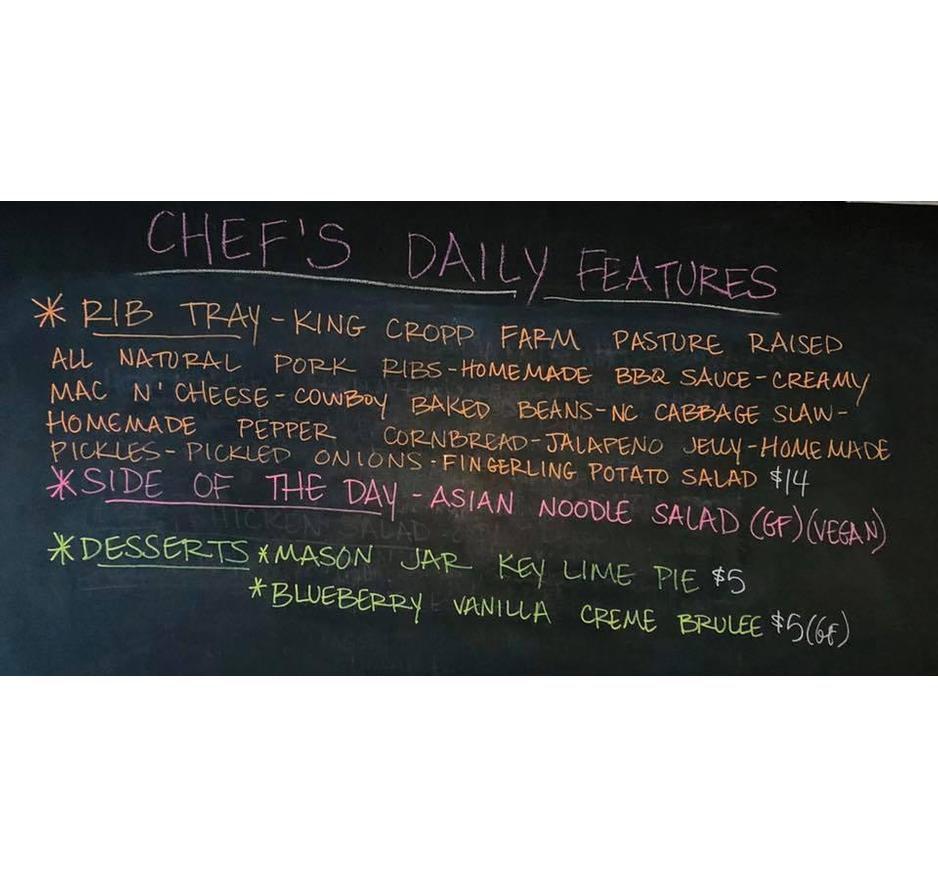 CHEF'S DAILY FEATURES
* RIB TRAY - KING CROPP FARM PASTURE RAISED
ALL NATURAL PORK RIBS - HOMEMADE BBQ SAUCE - CREAMY
MAC N' CHEESE - COWBOY BAKED BEANS - NC CABBAGE SLAW -
HOMEMADE PEPPER CORNBREAD - JALAPENO JELLY - HOMEMADE
PICKLES - PICKLED ONIONS - FINGERLING POTATO SALAD $14
* SIDE OF THE DAY - ASIAN NOODLE SALAD (GF) (VEGAN)
CHICKEN SALAD
* DESSERTS * MASON JAR KEY LIME PIE $5
* BLUEBERRY VANILLA CREME BRULEE $5 (GF)